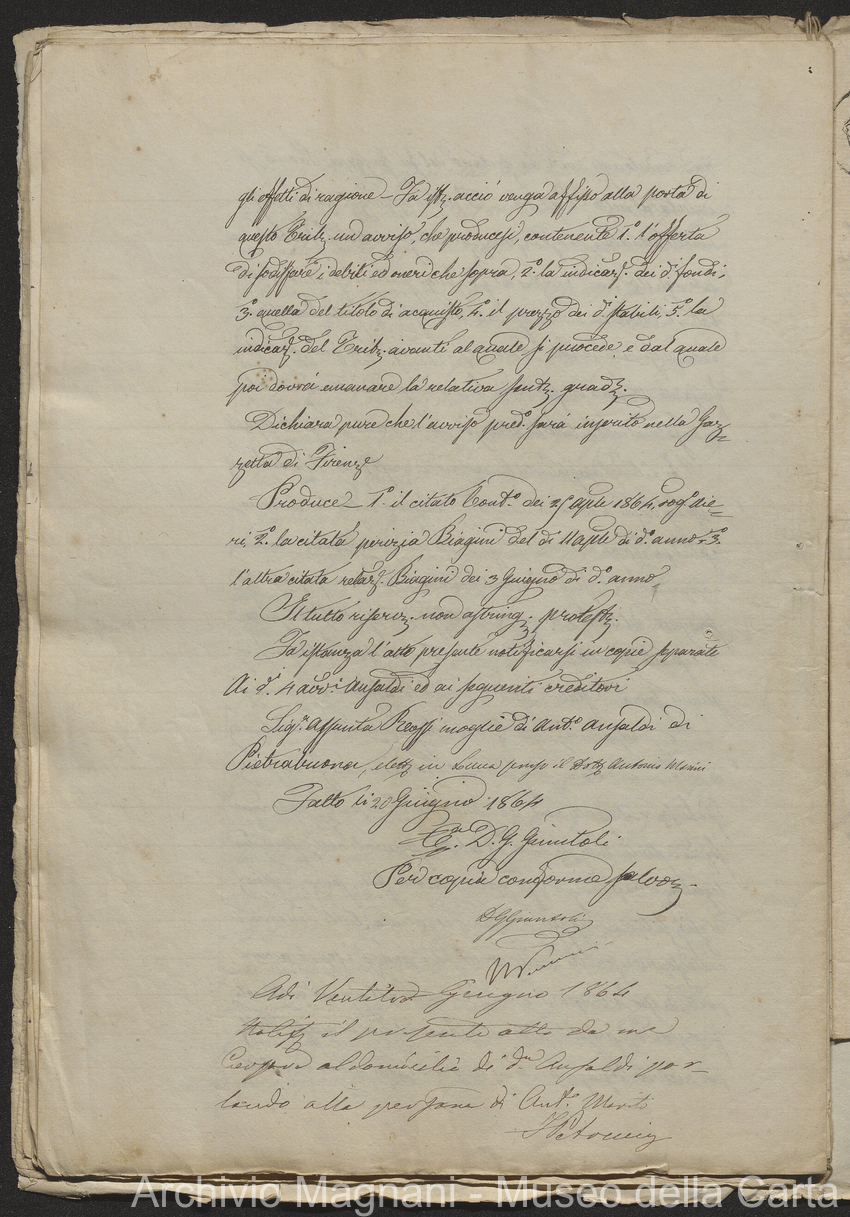 gli effetti di ragione - Fa istz. acciò venga affisso alla porta di
questo Tribz. un avviso, che producesi, contenente 1.° l'offerta
di sodisfare i debiti ed oneri che sopra, 2.° la indicazɛ. dei d.i fondi;
3.° quella del titolo di acquisto, 4.° il prezzo dei d.i stabili, 5.° la
indicaz. del Tribz. avanti al quale si procede e dal quale
poi dovrà emanare la relativa sentz. gradz.
Dichiara pure che l'avviso pred.° sarà inserito nella Gaz=
zetta di Firenze
Produce 1.° il citato Cont.° dei 25 aple 1864, rog.°
ri, 2.° la citata perizia Biagini del dì 11 aple di d.° anno, 3.°
l'altra citata relaz. Biagini dei 3 Giugno di d.° anno
Il tutto riserz. non astring. protestz.
Fa istanza l'atto presente notificarsi in copie separate
Ai d.i 4 Ansaldi ed ai seguenti creditori
Sig.ra Assunta moglie di Ant.° Ansaldi di
Pietrabuona, elettz in Lucca presso il Dott. Antonio Marini
Fatto li 20 Giugno 1864
D. G. Giuntoli
Per copia conforme salvoz.
D G Giuntoli
Adi Giugno 1864
Notifz il presente atto da me
al domicilio di d.° Ansaldi par=
lando alla persona di Ant.°